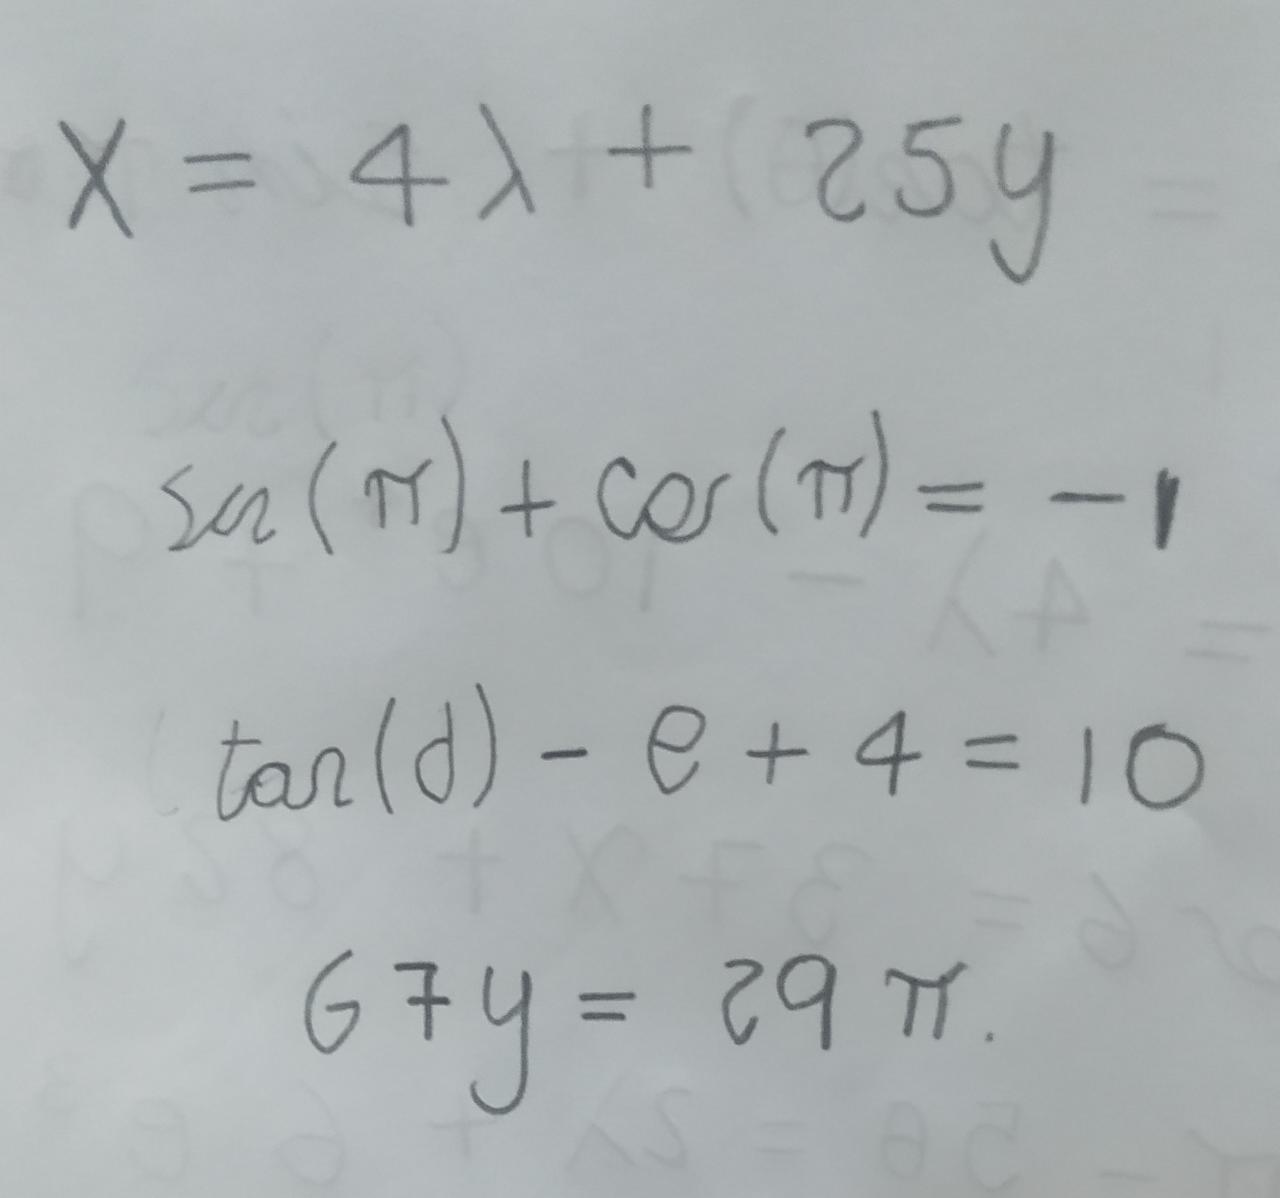 X = 4λ + 25y
sen(π) + cos(π) = -1
tan(d) - e + 4 = 10
67y = 29π.